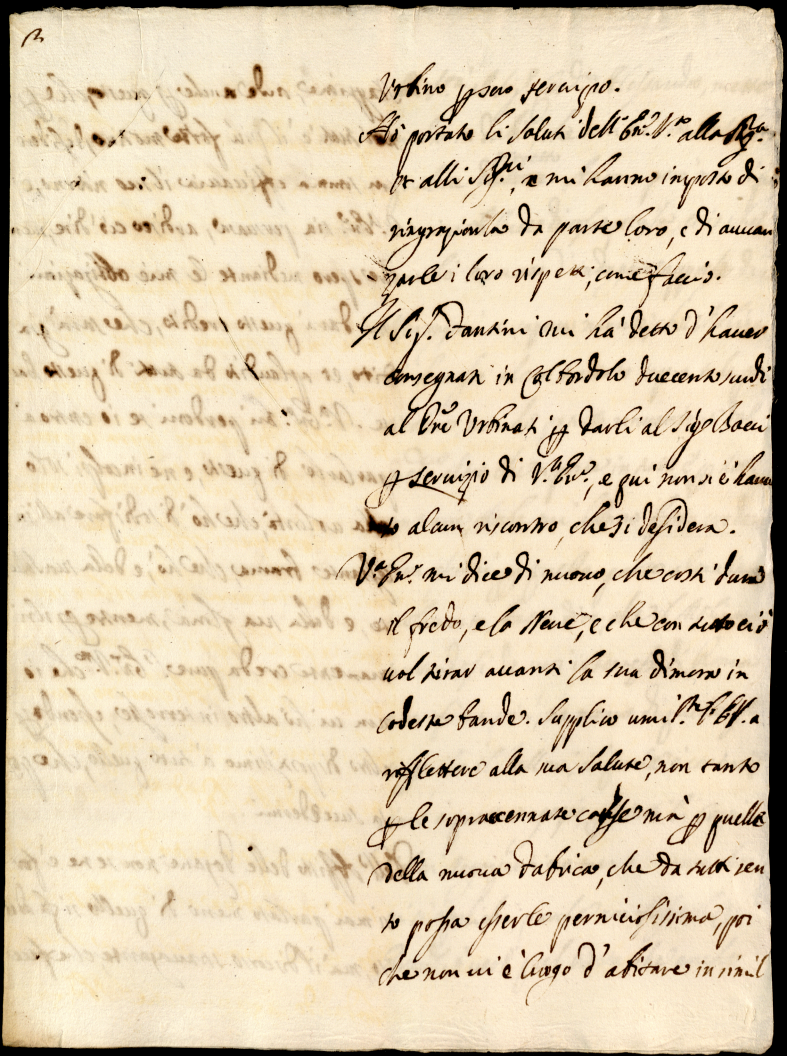 2
Urbino p suo servizio.
Hò portato li saluti dell'Em.ª V.ª alla Sig.ª
et alli Sig.ri, e mi hanno imposto di
ringraziarla da parte loro, e di avvan
zarle i loro rispetti, come faccio.
Il Sig.r Fantini mi hà detto d'haver
consegnati in Colbordolo duecento scudi
al Pre Urbinati p darli al Sig.r Bacci
p servizio di V.ª Em.ª, e qui non si è havu
to alcun riscontro, che si desidera.
V.ª Em.ª mi dice di nuovo, che costì dura
il freddo, e la Neve, e che con tutto ciò
vol tirar avanti la sua dimora in
codeste bande. Supplico umil.te l'E.V. a
riflettere alla sua salute, non tanto
p le sopraccennate cause mà p quelle
della nuova fabrica, che da tutti sen
to possa esserle perniciosissima, poi
che non vi è luogo d'abitare in simil